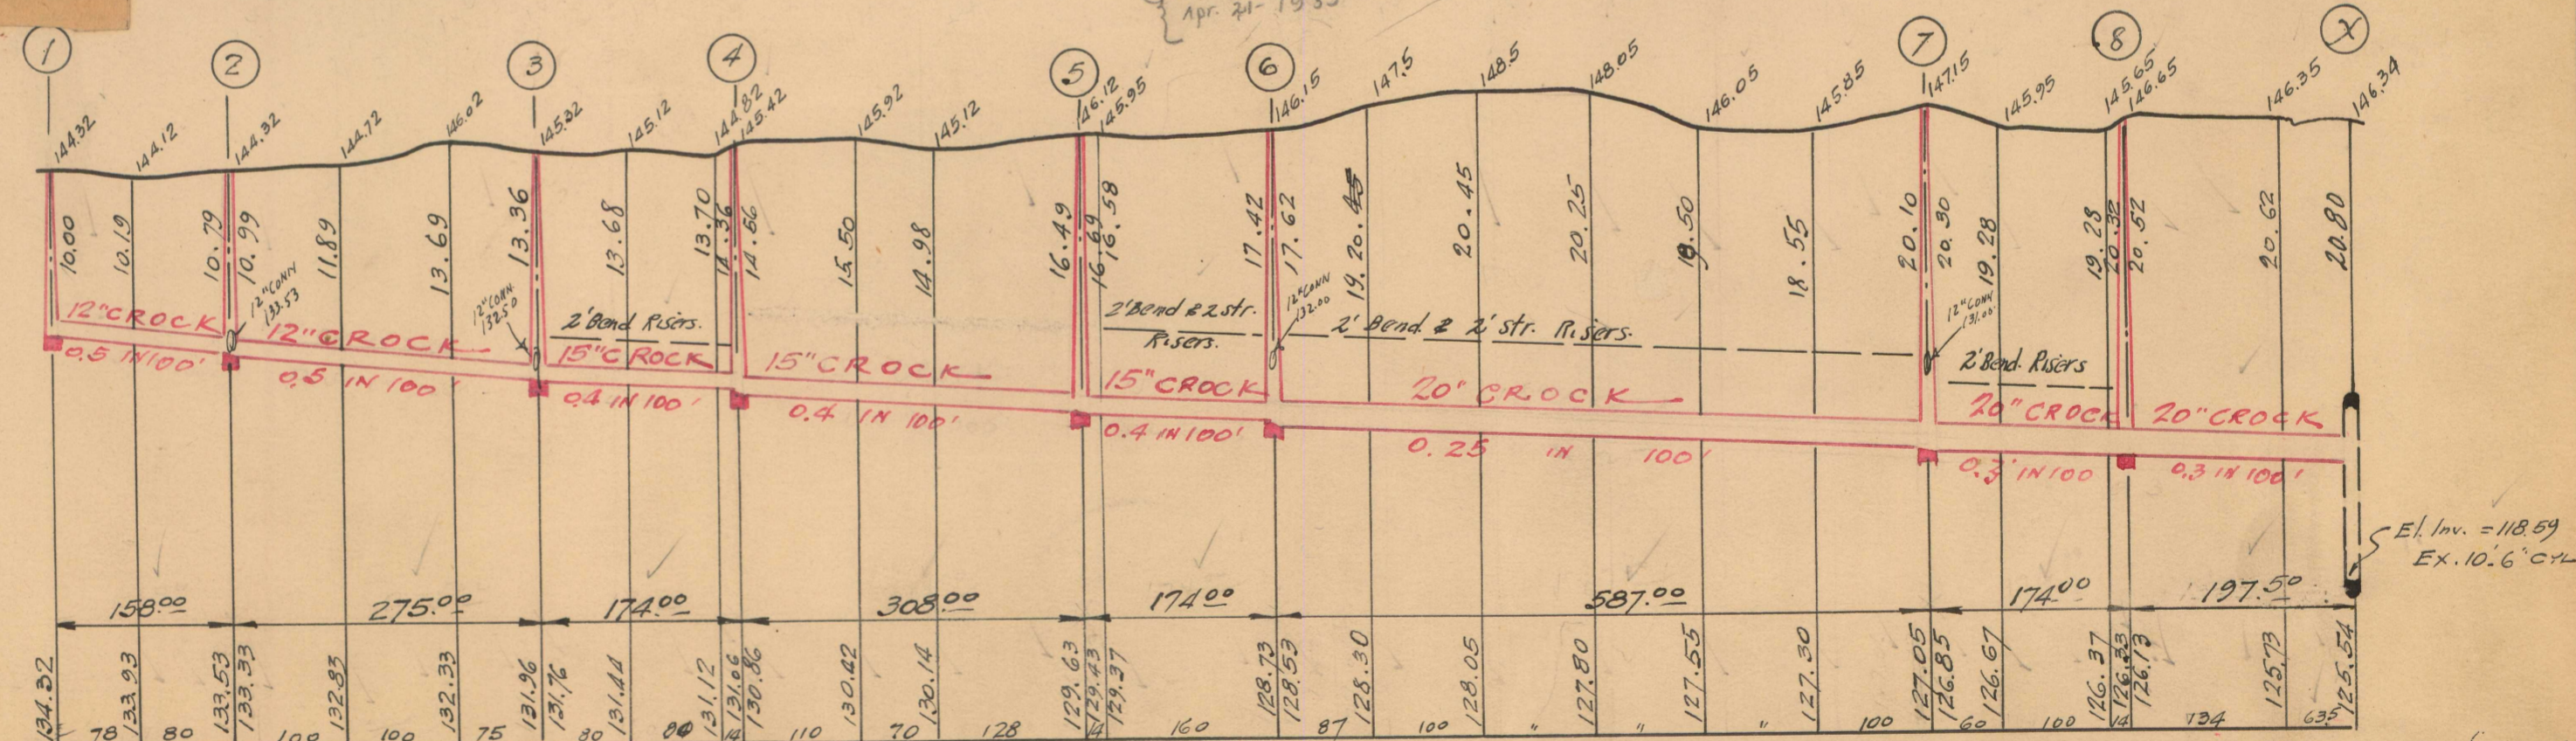 Apr. 21-1933
1 2 3 4 5 6 7 8 X
144.32 144.12 144.32 144.72 146.02 145.32 145.12 144.82 145.42 145.92 145.12 146.12 145.95 146.15 147.5 148.5 148.05 146.05 145.85 147.15 145.95 145.65 146.65 146.35 146.34
10.00 10.19 10.79 10.99 11.89 13.69 13.36 13.68 13.70 14.36 14.56 15.50 14.98 16.49 16.69 16.58 17.42 17.62 19.20 20.45 20.25 18.50 18.55 20.10 20.30 19.28 19.28 20.32 20.52 20.62 20.80
12" CONN 133.53
12" CONN. 132.50
12" CONN 132.00
12" CONN 131.00
2' Bend Risers.
2' Bend & 2 str. Risers.
2' Bend. & 2' str. Risers.
2' Bend. Risers
12" CROCK 12" CROCK 15" CROCK 15" CROCK 15" CROCK 20" CROCK 20" CROCK 20" CROCK
0.5 IN 100' 0.5 IN 100' 0.4 IN 100' 0.4 IN 100' 0.4 IN 100' 0.25 IN 100' 0.3' IN 100 0.3 IN 100'
El. Inv. = 118.59
Ex. 10'-6" CYL
158.00 275.00 174.00 308.00 174.00 587.00 174.00 197.50
134.32 133.93 133.53 133.33 132.83 132.33 131.96 131.76 131.44 131.12 131.06 130.86 130.42 130.14 129.63 129.43 129.37 128.73 128.53 128.30 128.05 127.80 127.55 127.30 127.05 126.85 126.67 126.37 126.33 126.13 125.73 125.54
78 80 100 100 75 80 80 14 110 70 128 14 160 87 100 " " " 100 60 100 14 134 63.5